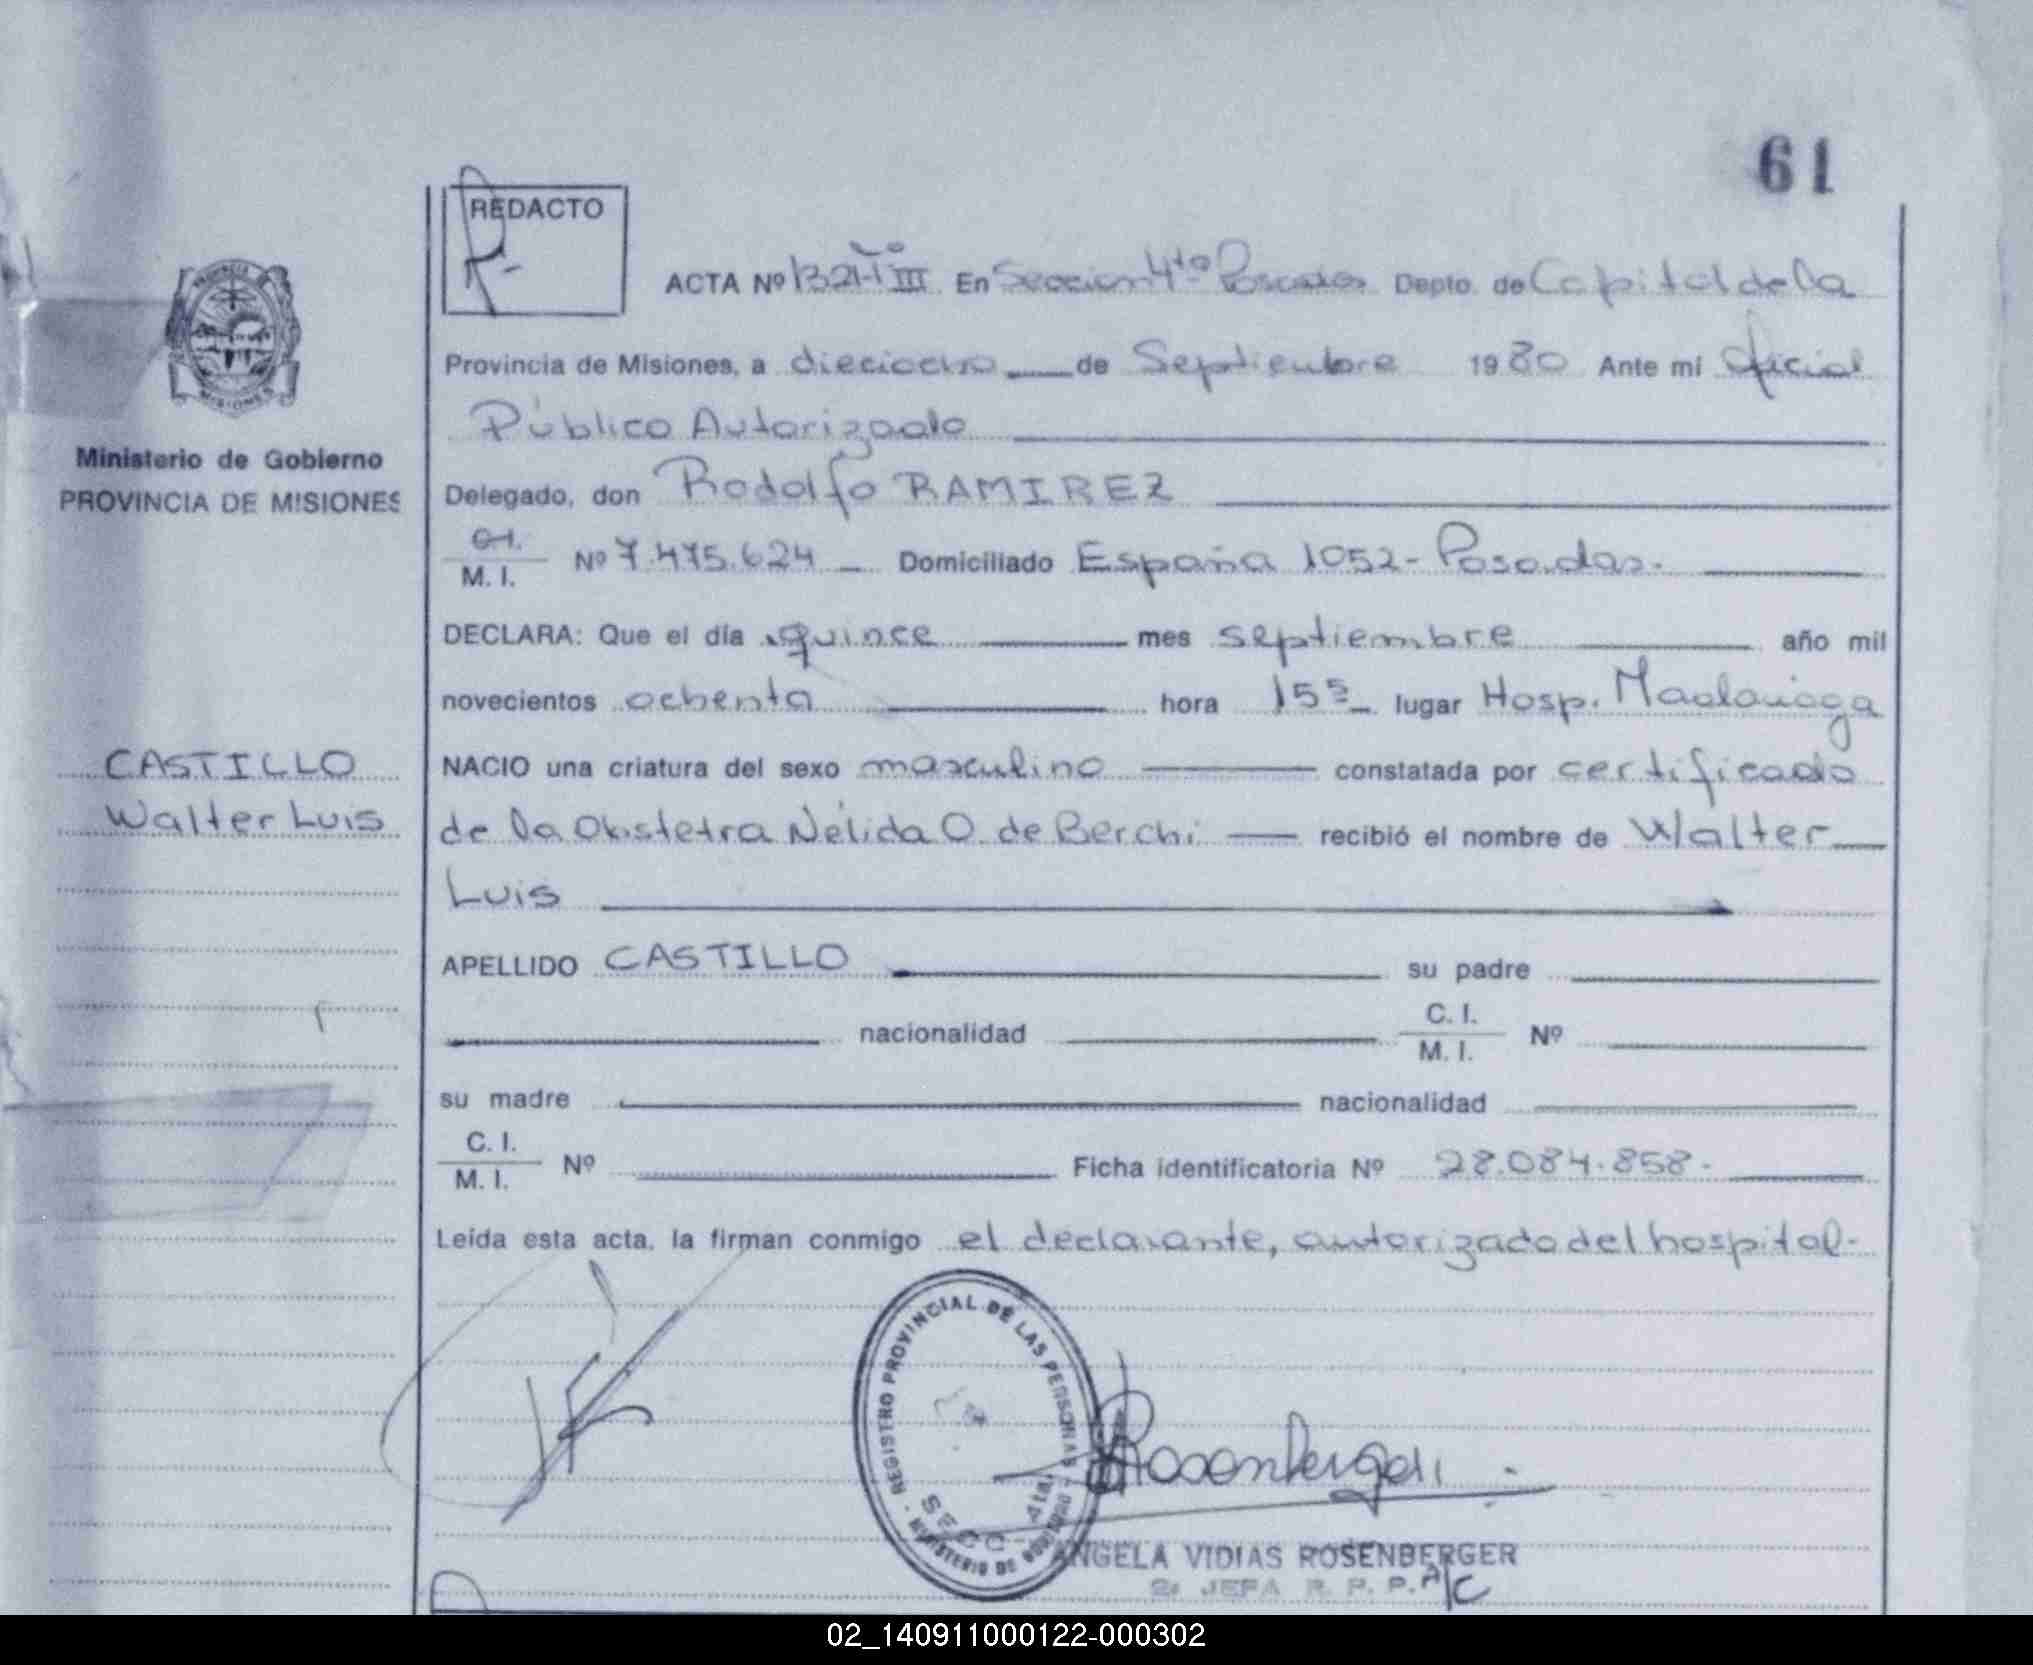 61
REDACTO
ACTA Nº 1321-Tº III En Sección 4ta Posadas Depto. de Capital de la
Provincia de Misiones, a dieciocho de Septiembre 1980 Ante mi Oficial
Público Autorizado
Ministerio de Gobierno
PROVINCIA DE MISIONES
Delegado, don Rodolfo RAMIREZ
C.I.
M. I. Nº 7.475.624 Domiciliado España 1052 - Posadas.
DECLARA: Que el día quince mes septiembre año mil
novecientos ochenta hora 15⁵ lugar Hosp. Madariaga
CASTILLO
Walter Luis
NACIO una criatura del sexo masculino constatada por certificado
de la Obstetra Nélida O. de Berchi recibió el nombre de Walter
Luis
APELLIDO CASTILLO su padre
nacionalidad C. I.
M. I. Nº
su madre nacionalidad
C. I.
M. I. Nº Ficha identificatoria Nº 28.084.858.
Leída esta acta, la firman conmigo el declarante, autorizado del hospital.
REGISTRO PROVINCIAL DE LAS PERSONAS
MINISTERIO DE GOBIERNO
SECC. 4ta.
Rosenberger
ANGELA VIDIAS ROSENBERGER
2ª JEFA R. P. P. A/C
02_140911000122-000302